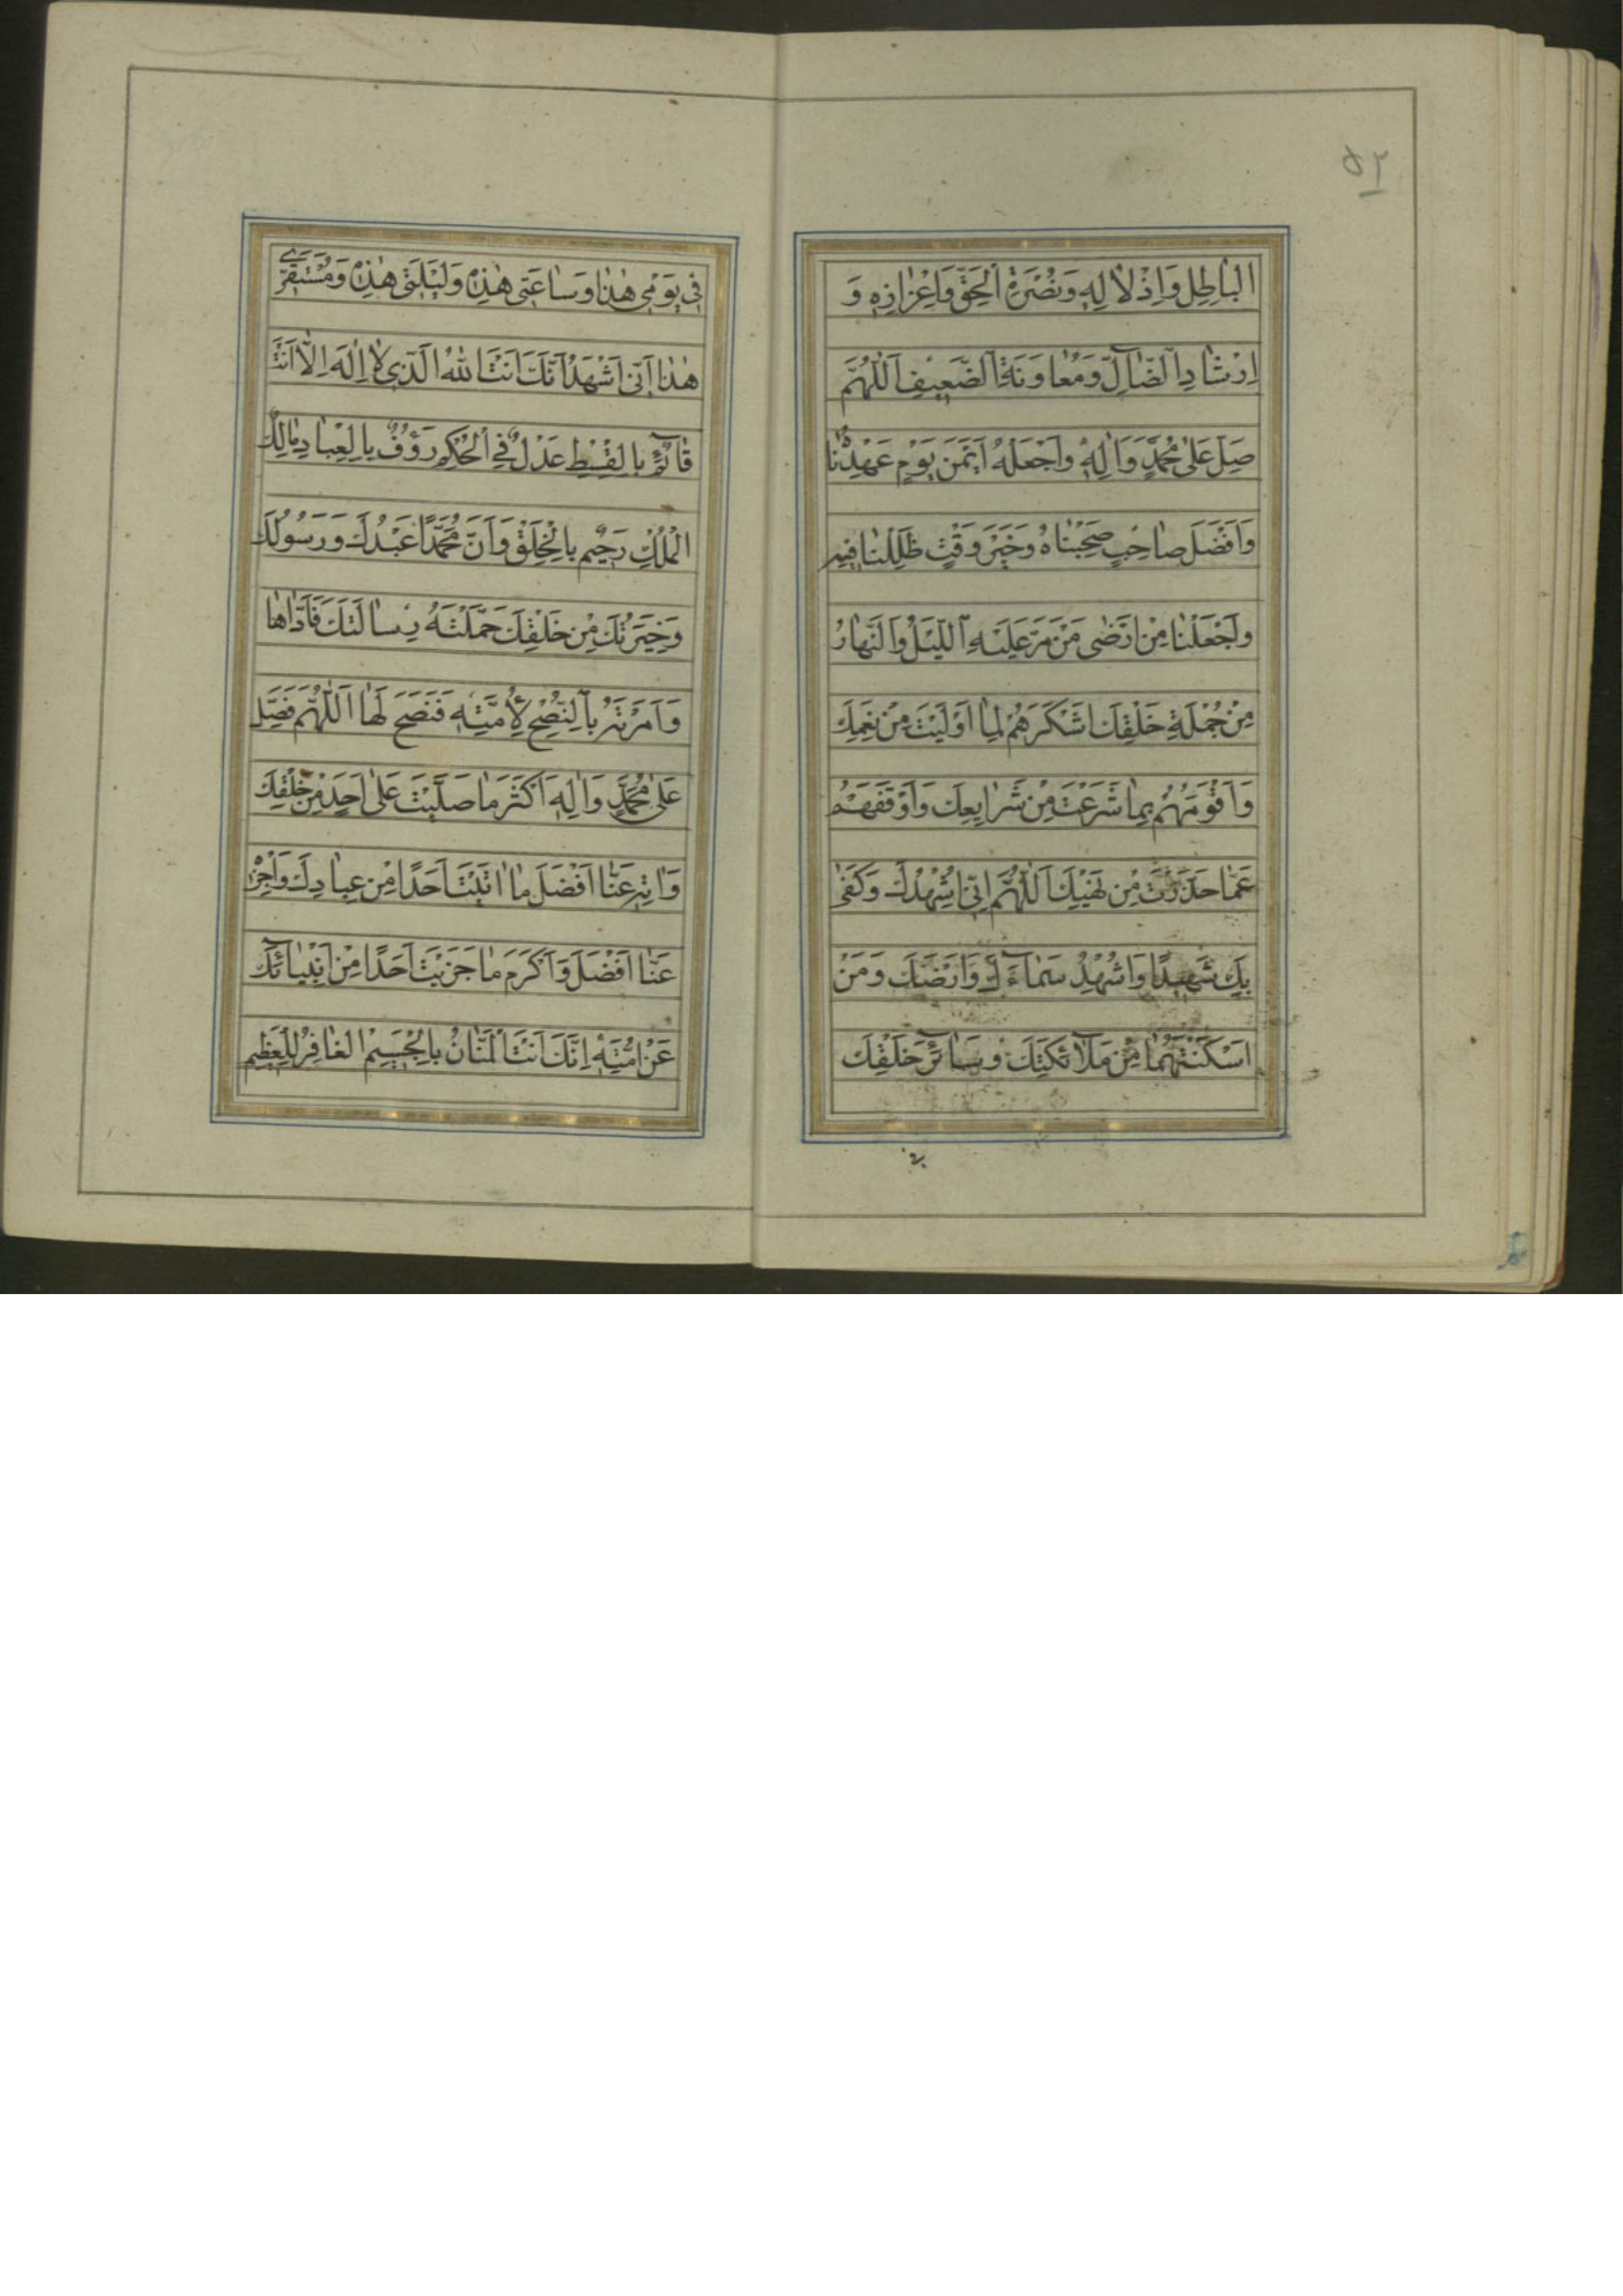 ٥٢
الْباطِلِ وَاِذْلالِهِ وَنُصْرَةِ الْحَقِّ وَاِعْزازِهِ وَ
اِرْشادِ الضّآلِّ وَمُعاوَنَةِ الضَّعيفِ اَللّٰهُمَّ
صَلِّ عَلىٰ مُحَمَّدٍ وَاٰلِهِ وَاجْعَلْهُ اَيْمَنَ يَوْمٍ عَهِدْناهُ
وَاَفْضَلَ صاحِبٍ صَحِبْناهُ وَخَيْرَ وَقْتٍ ظَلِلْنا فيهِ
وَاجْعَلْنا مِنْ اَرْضىٰ مَنْ مَرَّ عَلَيْهِ اللَّيْلُ وَالنَّهارُ
مِنْ جُمْلَةِ خَلْقِكَ اَشْكَرَهُمْ لِما اَوْلَيْتَ مِنْ نِعَمِكَ
وَاَقْوَمَهُمْ بِما شَرَعْتَ مِنْ شَرايِعِكَ وَاَوْقَفَهُمْ
عَمّا حَذَّرْتَ مِنْ نَهْيِكَ اَللّٰهُمَّ اِنّى اُشْهِدُكَ وَكَفىٰ
بِكَ شَهيدًا وَاُشْهِدُ سَمآءَكَ وَاَرْضَكَ وَمَنْ
اَسْكَنْتَهُما مِنْ مَلآئِكَتِكَ وَسآئِرِ خَلْقِكَ
فى يَوْمى هٰذا وَساعَتى هٰذِهِ وَلَيْلَتى هٰذِهِ وَمُسْتَقَرّى
هٰذا اَنّى اَشْهَدُ اَنَّكَ اَنْتَ اللّٰهُ الَّذى لا اِلٰهَ اِلّا اَنْتَ
قآئِمٌ بِالْقِسْطِ عَدْلٌ فِى الْحُكْمِ رَؤُفٌ بِالْعِبادِ مالِكُ
الْمُلْكِ رَحيمٌ بِالْخَلْقِ وَاَنَّ مُحَمَّدًا عَبْدُكَ وَرَسُولُكَ
وَخِيَرَتُكَ مِنْ خَلْقِكَ حَمَّلْتَهُ رِسالَتَكَ فَاَدّاها
وَاَمَرْتَهُ بِالنُّصْحِ لِاُمَّتِهِ فَنَصَحَ لَها اَللّٰهُمَّ فَصَلِّ
عَلىٰ مُحَمَّدٍ وَاٰلِهِ اَكْثَرَ ما صَلَّيْتَ عَلىٰ اَحَدٍ مِنْ خَلْقِكَ
وَاٰتِهِ عَنّا اَفْضَلَ ما اٰتَيْتَ اَحَدًا مِنْ عِبادِكَ وَاجْزِهِ
عَنّا اَفْضَلَ وَاَكْرَمَ ما جَزَيْتَ اَحَدًا مِنْ اَنْبِيآئِكَ
عَنْ اُمَّتِهِ اِنَّكَ اَنْتَ الْمَنّانُ بِالْجَسيمِ الْغافِرُ لِلْعَظيمِ